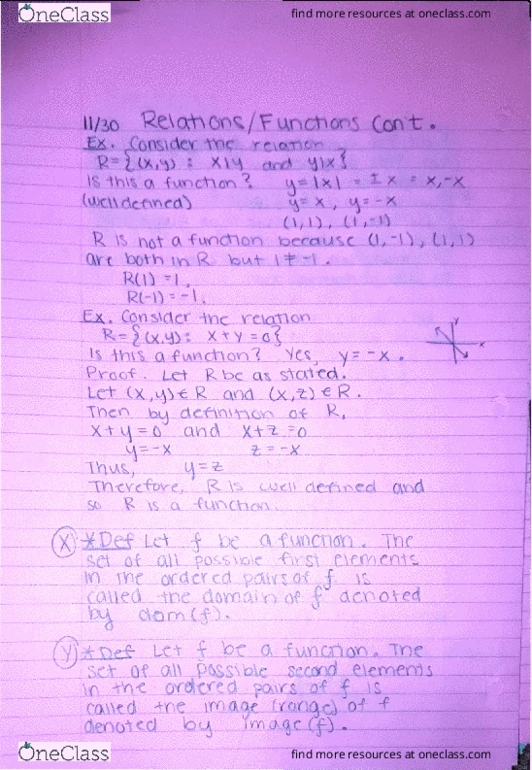 OneClass
find more resources at oneclass.com
11/30 Relations/Functions Con't.
Ex. Consider the relation
R={(x,y): x|y and y|x}
Is this a function? y=|x| = ± x = x,-x
(well defined) y=x, y=-x
(1,1), (1,-1)
R is not a function because (1,-1), (1,1)
are both in R but 1≠-1.
R(1)=1,
R(-1)=-1.
Ex. Consider the relation
R={(x,y): x+y=0}
Is this a function? Yes, y=-x.
y
x
Proof. Let R be as stated.
Let (x,y)∈R and (x,z)∈R.
Then by definition of R,
x+y=0 and x+z=0
y=-x z=-x
Thus, y=z
Therefore, R is well defined and
so R is a function.
(X) *Def Let f be a function. The
set of all possible first elements
in the ordered pairs of f is
called the domain of f denoted
by dom(f).
(Y) *Def Let f be a function. The
set of all possible second elements
in the ordered pairs of f is
called the image (range) of f
denoted by image(f).
OneClass
find more resources at oneclass.com